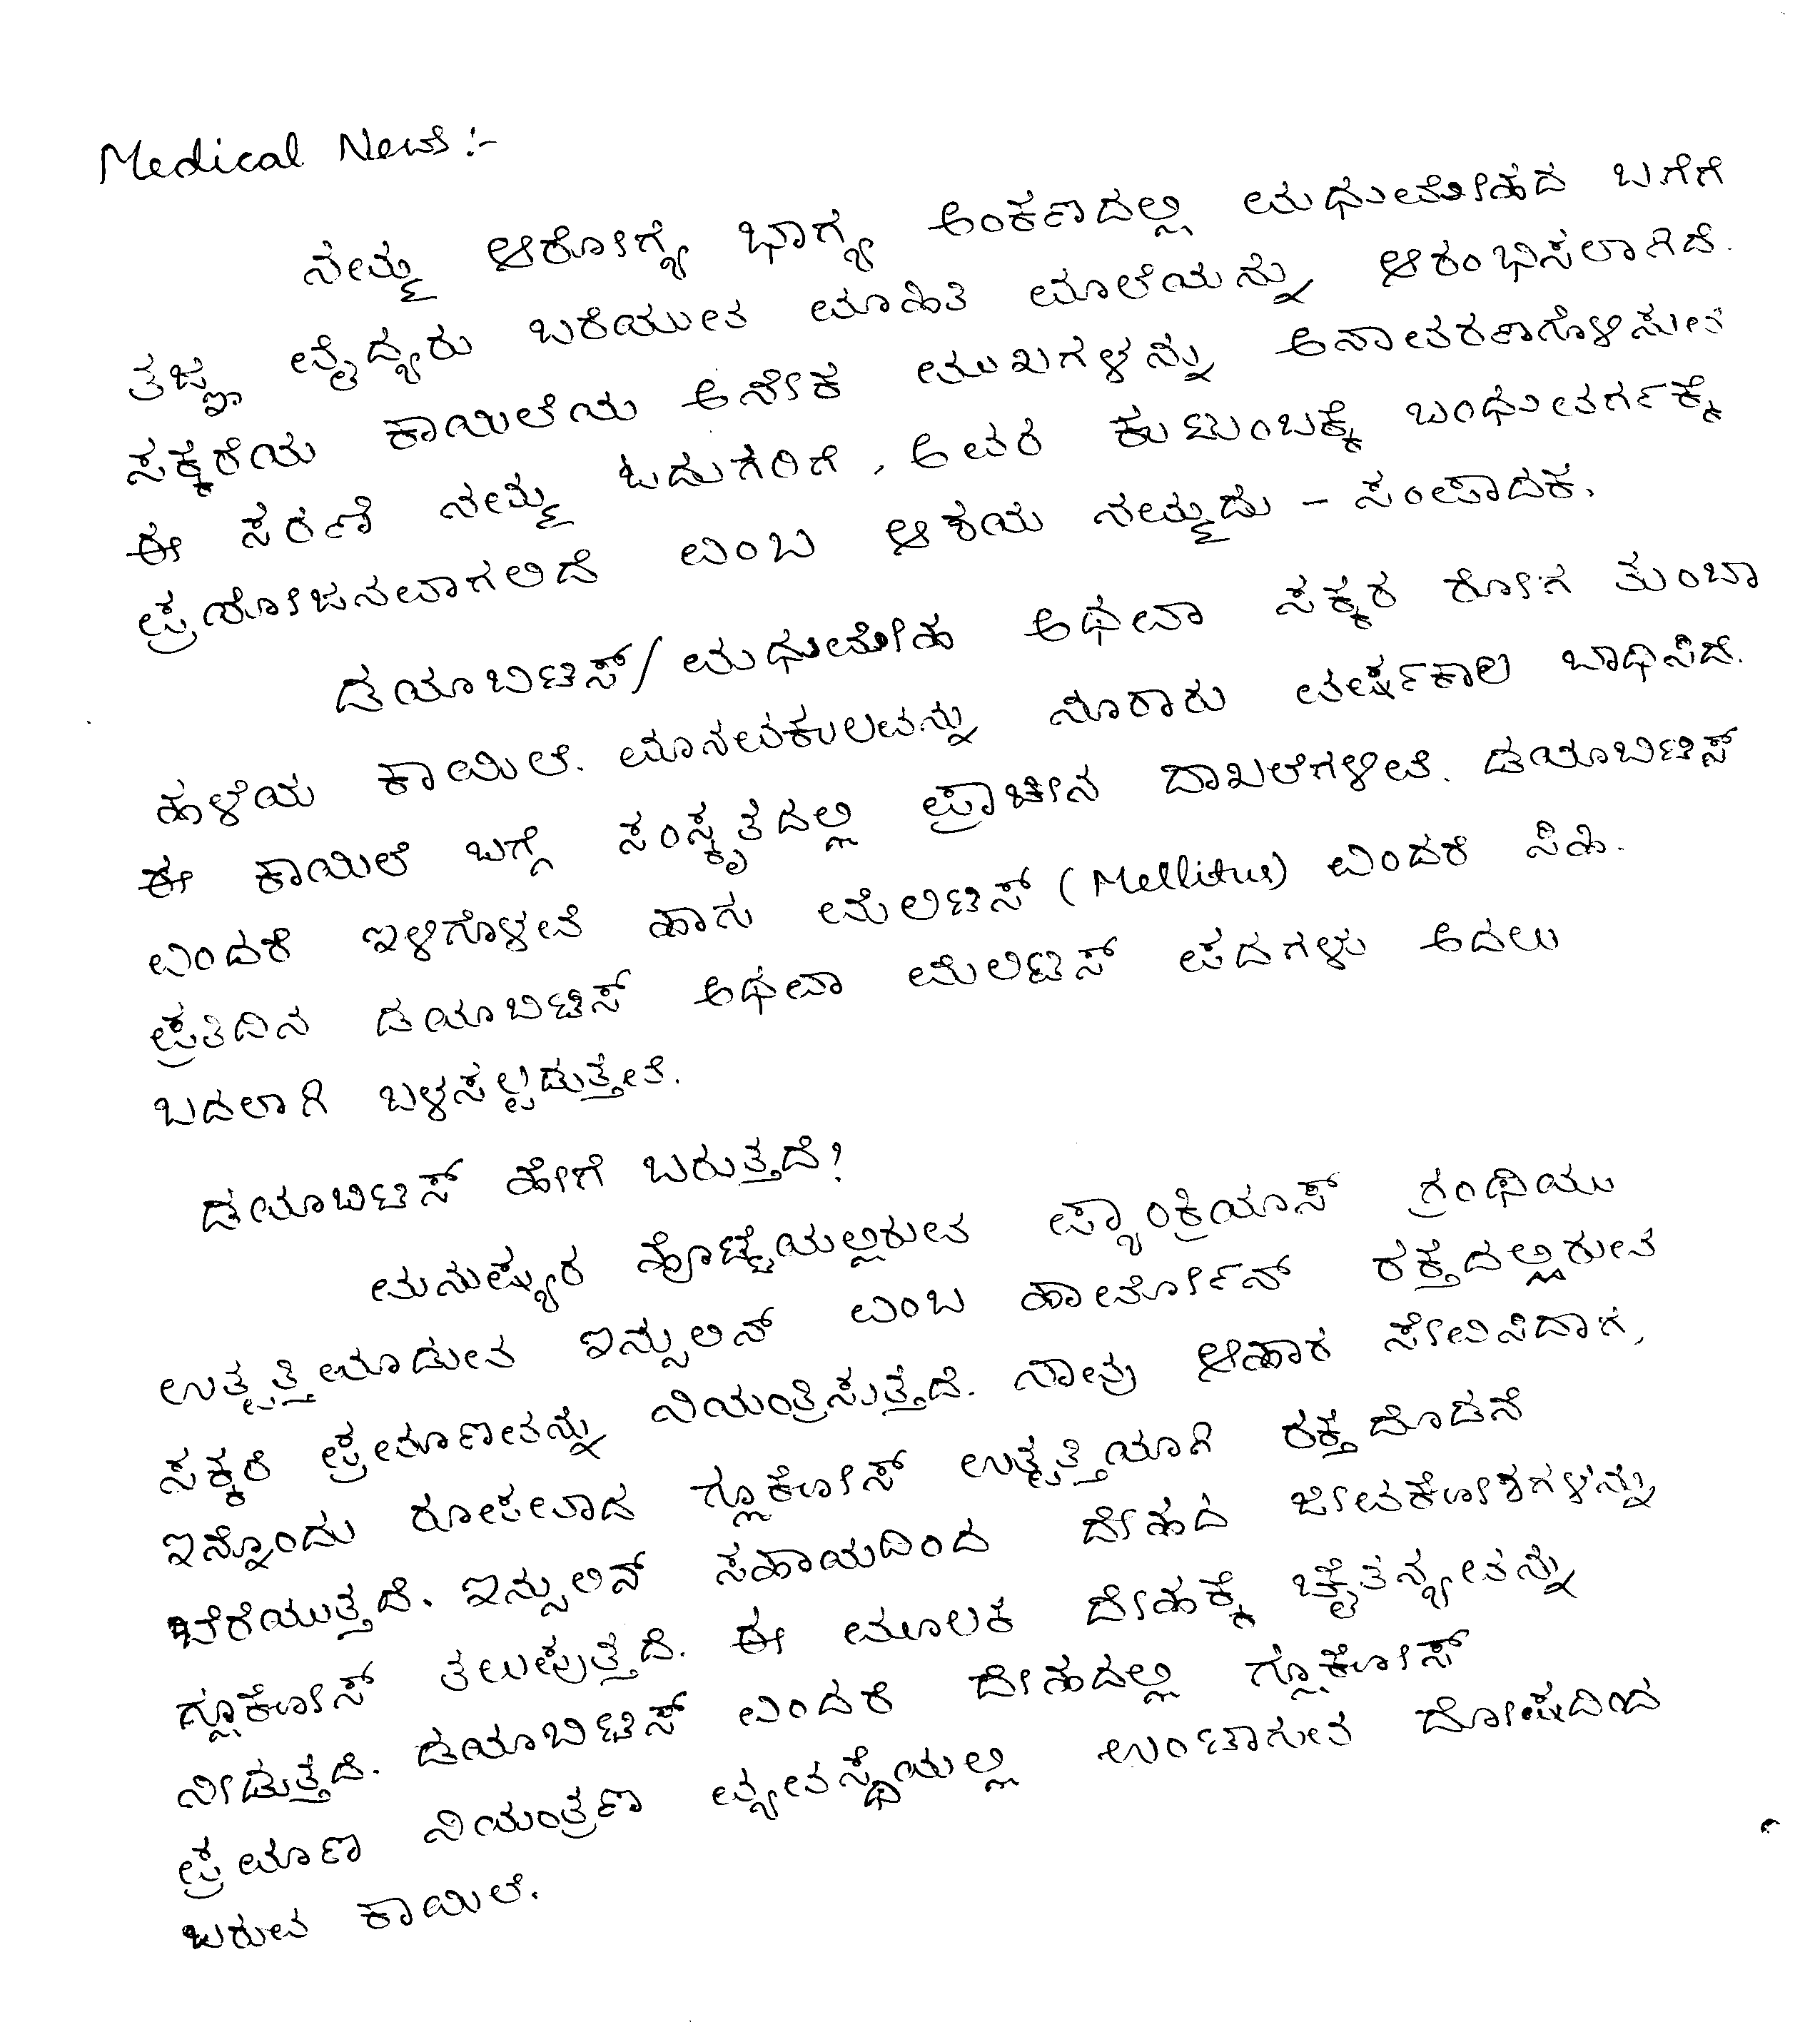 Medical News :-
ನಮ್ಮ ಆರೋಗ್ಯ ಭಾಗ್ಯ ಅಂಕಣದಲ್ಲಿ ಮಧುಮೇಹದ ಬಗೆಗೆ
ತಜ್ಞ ವೈದ್ಯರು ಬರೆಯುವ ಮಾಹಿತಿ ಮಾಲೆಯನ್ನು ಆರಂಭಿಸಲಾಗಿದೆ.
ಸಕ್ಕರೆಯ ಕಾಯಿಲೆಯ ಅನೇಕ ಮುಖಗಳನ್ನು ಅನಾವರಣಗೊಳಿಸುವ
ಈ ಸರಣಿ ನಮ್ಮ ಓದುಗರಿಗೆ, ಅವರ ಕುಟುಂಬಕ್ಕೆ ಬಂಧುವರ್ಗಕ್ಕೆ
ಪ್ರಯೋಜನವಾಗಲಿದೆ ಎಂಬ ಆಶಯ ನಮ್ಮದು - ಸಂಪಾದಕ.
ಡಯಾಬಿಟಿಸ್/ಮಧುಮೇಹ ಅಥವಾ ಸಕ್ಕರ ರೋಗ ತುಂಬಾ
ಹಳೆಯ ಕಾಯಿಲೆ. ಮಾನವಕುಲವನ್ನು ನೂರಾರು ವರ್ಷಕಾಲ ಬಾಧಿಸಿದ.
ಈ ಕಾಯಿಲೆ ಬಗ್ಗೆ ಸಂಸ್ಕೃತದಲ್ಲಿ ಪ್ರಾಚೀನ ದಾಖಲೆಗಳಿವೆ. ಡಯಾಬಿಟಿಸ್
ಎಂದರೆ ಇಳಿಗೊಳವೆ ಹಾಗು ಮೆಲಿಟಿಸ್ (Mellitus) ಎಂದರೆ ಸಿಹಿ.
ಪ್ರತಿದಿನ ಡಯಾಬಿಟಿಸ್ ಅಥವಾ ಮೆಲಿಟಿಸ್ ಪದಗಳು ಅದಲು
ಬದಲಾಗಿ ಬಳಸಲ್ಪಡುತ್ತವೆ.
ಡಯಾಬಿಟಿಸ್ ಹೇಗೆ ಬರುತ್ತದೆ?
ಮನುಷ್ಯರ ಹೊಟ್ಟೆಯಲ್ಲಿರುವ ಪ್ಯಾಂಕ್ರಿಯಾಸ್ ಗ್ರಂಥಿಯು
ಉತ್ಪತ್ತಿಮಾಡುವ ಇನ್ಸುಲಿನ್ ಎಂಬ ಹಾರ್ಮೋನ್ ರಕ್ತದಲ್ಲಿರುವ
ಸಕ್ಕರೆ ಪ್ರಮಾಣವನ್ನು ನಿಯಂತ್ರಿಸುತ್ತದೆ. ನಾವು ಆಹಾರ ಸೇವಿಸಿದಾಗ,
ಇನ್ನೊಂದು ರೂಪವಾದ ಗ್ಲೂಕೋಸ್ ಉತ್ಪತ್ತಿಯಾಗಿ ರಕ್ತದೊಡನೆ
ಬೆರೆಯುತ್ತದೆ. ಇನ್ಸುಲಿನ್ ಸಹಾಯದಿಂದ ದೇಹದ ಜೀವಕೋಶಗಳನ್ನು
ಗ್ಲೂಕೋಸ್ ತಲುಪುತ್ತದೆ. ಈ ಮೂಲಕ ದೇಹಕ್ಕೆ ಚೈತನ್ಯವನ್ನು
ನೀಡುತ್ತದೆ. ಡಯಾಬಿಟಿಸ್ ಎಂದರೆ ದೇಹದಲ್ಲಿ ಗ್ಲೂಕೋಸ್
ಪ್ರಮಾಣ ನಿಯಂತ್ರಣ ವ್ಯವಸ್ಥೆಯಲ್ಲಿ ಉಂಟಾಗುವ ದೋಷದಿಂದ
ಬರುವ ಕಾಯಿಲೆ.